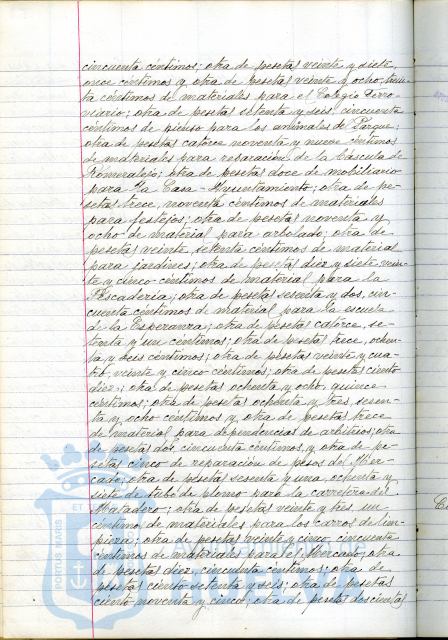 cincuenta céntimos; otra de pesetas veinte y siete,
once céntimos y otra de pesetas veinte y ocho, trein-
ta céntimos de materiales para el Colegio Ferro-
viario; otra de pesetas setenta y seis, cincuenta
céntimos de pienso para los animales del Parque;
otra de pesetas catorce noventa y nueve céntimos
de materiales para reparación de la Báscula de
Romeralejo; otra de pesetas doce de mobiliario
para la Casa-Ayuntamiento; otra de pe-
setas trece, noventa céntimos de materiales
para festejos; otra de pesetas noventa y
ocho de material para arbolado; otra de
pesetas veinte, setenta céntimos de material
para jardines; otra de pesetas diez y siete vein-
te y cinco céntimos de material para la
Pescadería; otra de pesetas sesenta y dos, cin-
cuenta céntimos de material para la escuela
de la Esperanza; otra de pesetas catorce, se-
tenta y un céntimos; otra de pesetas trece, ochen-
ta y seis céntimos; otra de pesetas veinte y cua-
tro, veinte y cinco céntimos; otra de pesetas ciento
diez; otra de pesetas ochenta y ocho, quince
céntimos; otra de pesetas ochenta y tres, sesen-
ta y ocho céntimos y otra de pesetas trece
de material para dependencias de arbitrios; otra
de pesetas dos, cincuenta céntimos, y otra de pe-
setas cinco de reparación de pesos del Mer-
cado; otra de pesetas sesenta y una, ochenta y
siete de tubo de plomo para la carretera del
Matadero; otra de pesetas veinte y tres un
céntimo de materiales para los carros de lim-
pieza; otra de pesetas veinte y cinco, cincuenta
céntimos de materiales para el Mercado; otra
de pesetas diez, cincuenta céntimos; otra de
pesetas ciento setenta y seis; otra de pesetas
ciento noventa y cinco; otra de pesetas doscientas
PORTUS MARIS ET